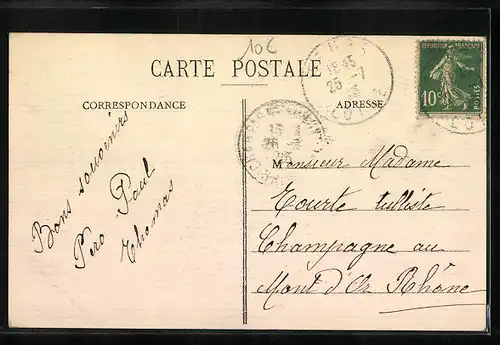 10c
CARTE POSTALE
CORRESPONDANCE
ADRESSE
REPUBLIQUE FRANÇAISE
10c
POSTES
18 45
25 -7
Bons souvenirs
Pero Paul
Thomas
Monsieur Madame
Tourte tulliste
Champagne au
Mont d'Or Rhône